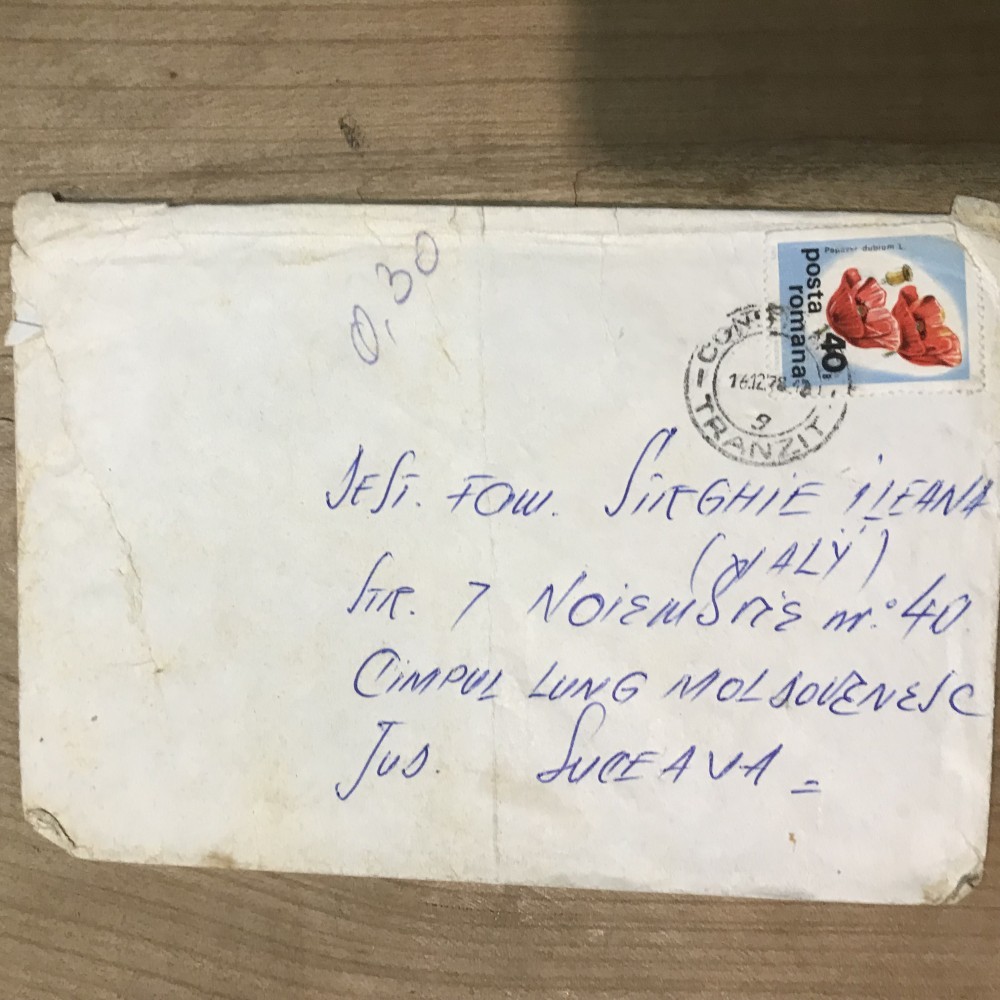 0,30
Papaver dubium L.
posta romana
40
TRANZIT
16.12.78
9
DEST. FAM. SIRGHIE ILEANA
(WALY)
STR. 7 NOIEMBRIE nr. 40
CIMPUL LUNG MOLDOVENESC
JUD. SUCEAVA =